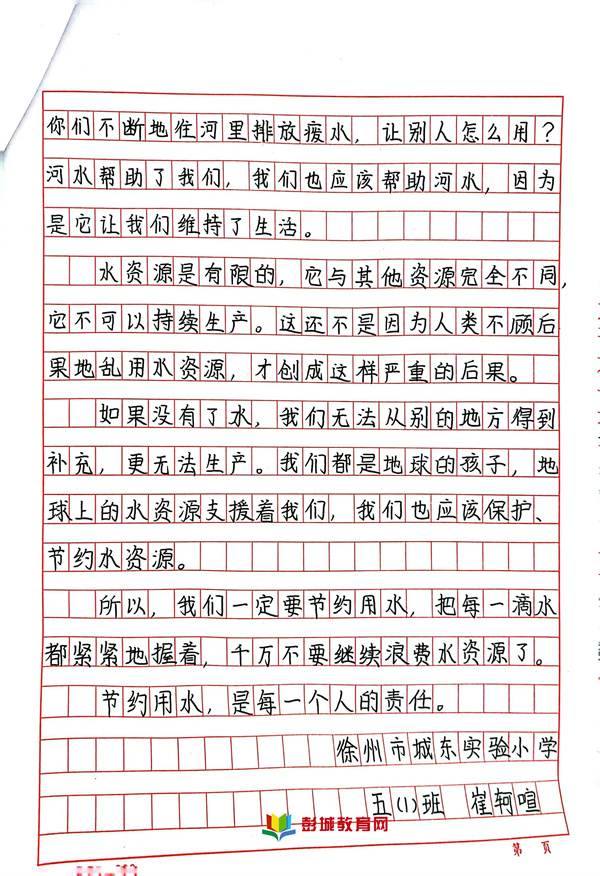 你们不断地住河里排放废水，让别人怎么用？
河水帮助了我们，我们也应该帮助河水，因为
是它让我们维持了生活。
水资源是有限的，它与其他资源完全不同，
它不可以持续生产。这还不是因为人类不顾后
果地乱用水资源，才创成这样严重的后果。
如果没有了水，我们无法从别的地方得到
补充，更无法生产。我们都是地球的孩子，地
球上的水资源支援着我们，我们也应该保护、
节约水资源。
所以，我们一定要节约用水，把每一滴水
都紧紧地握着，千万不要继续浪费水资源了。
节约用水，是每一个人的责任。
徐州市城东实验小学
五(1)班 崔轲喧
彭城教育网
第 页